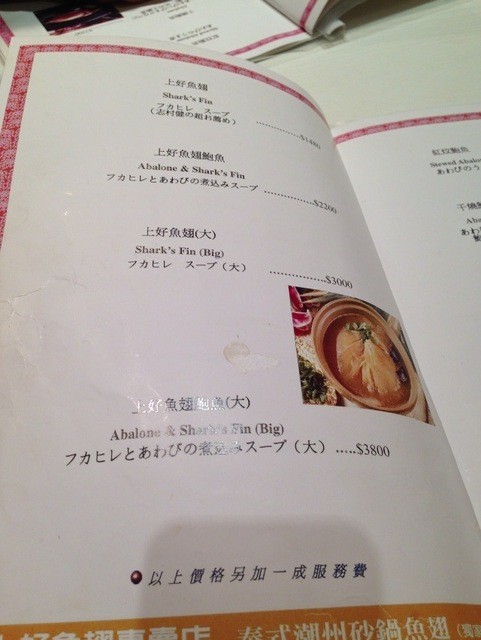 上好魚翅
Shark's Fin
フカヒレ スープ
(志村健の超お薦め)
..................$1480
上好魚翅鮑魚
Abalone & Shark's Fin
フカヒレとあわびの煮込みスープ
..................$2200
上好魚翅(大)
Shark's Fin (Big)
フカヒレ スープ(大)
..................$3000
上好魚翅鮑魚(大)
Abalone & Shark's Fin (Big)
フカヒレとあわびの煮込みスープ(大) .....$3800
以上價格另加一成服務費
好魚翅專賣店 泰式潮州砂鍋魚翅
紅炆鮑魚
Stewed
あわびの
干燒
あわ